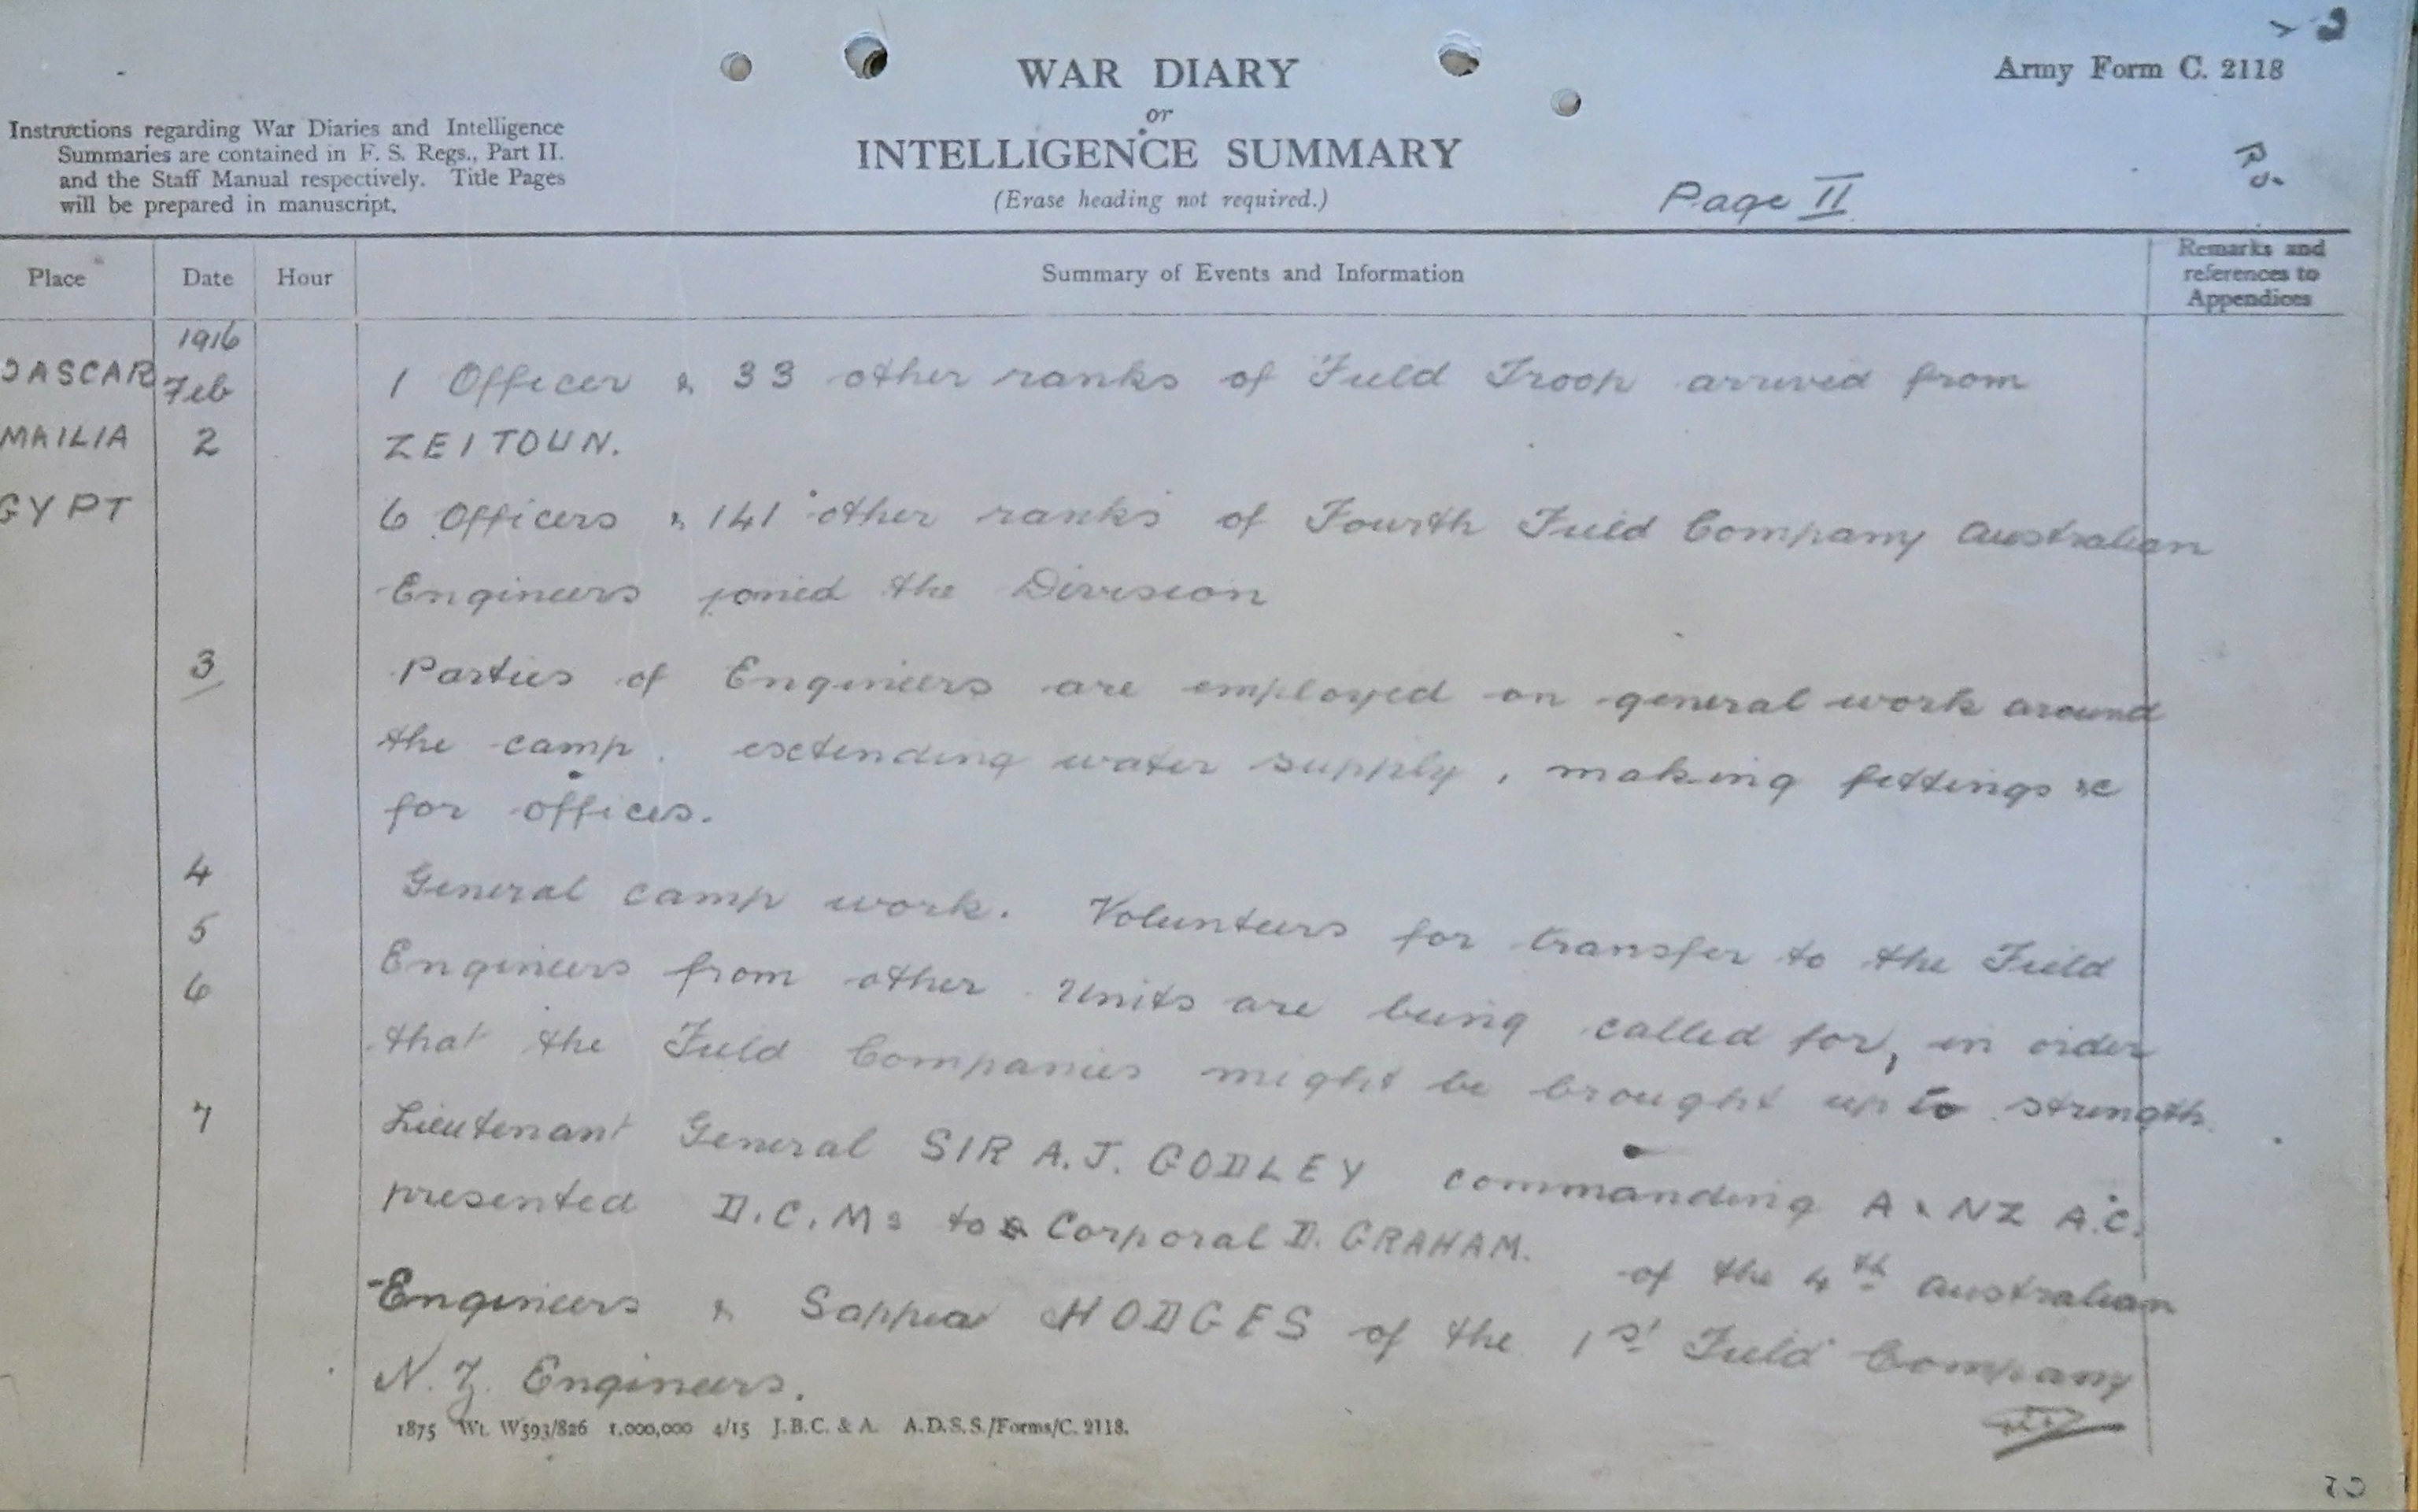 WAR DIARY
or
INTELLIGENCE SUMMARY
(Erase heading not required.)
Army Form C. 2118
Instructions regarding War Diaries and Intelligence
Summaries are contained in F. S. Regs., Part II.
and the Staff Manual respectively. Title Pages
will be prepared in manuscript.
Page II
Place Date Hour Summary of Events and Information Remarks and
references to
Appendices
1916
ASCAR Feb 1 Officer & 33 other ranks of Field Troop arrived from
MAILIA 2 ZEITOUN.
GYPT 6 Officers & 141 other ranks of Fourth Field Company Australian
Engineers joined the Division
3 Parties of Engineers are employed on general work around
the camp. extending water supply, making fittings &c
for offices.
4 General camp work. Volunteers for transfer to the Field
5 Engineers from other Units are being called for, in order
6 that the Field Companies might be brought up to strength.
7 Lieutenant General SIR A.J. GODLEY commanding A & NZ A.C.
presented D.C.Ms to Corporal D. GRAHAM. of the 4th Australian
Engineers & Sapper HODGES of the 1st Field Company
N.Z. Engineers.
1875 Wt. W593/826 1,000,000 4/15 J.B.C. & A. A.D.S.S./Forms/C. 2118.